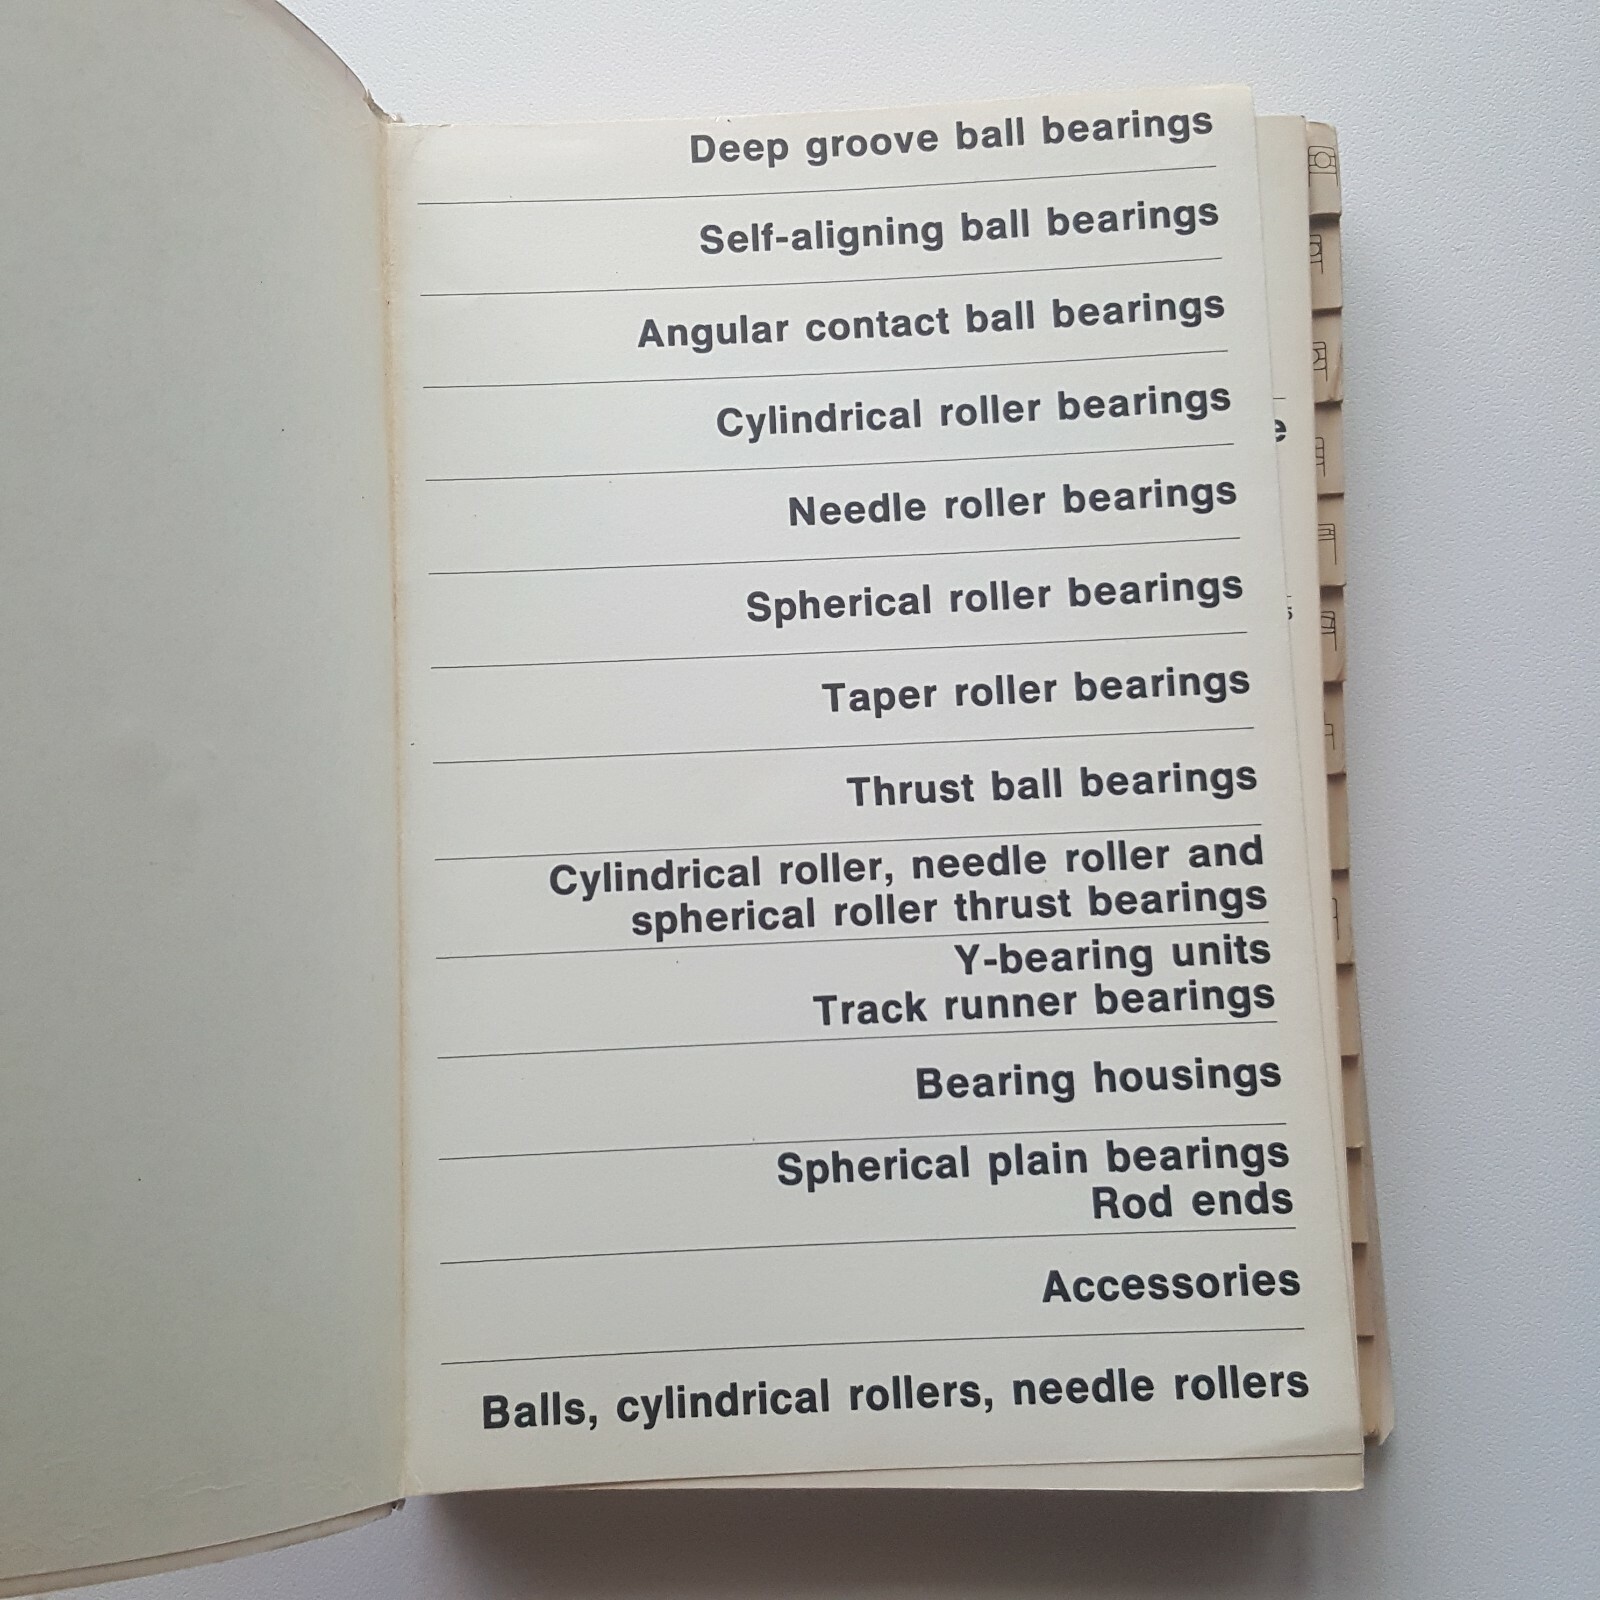 Deep groove ball bearings
Self-aligning ball bearings
Angular contact ball bearings
Cylindrical roller bearings
Needle roller bearings
Spherical roller bearings
Taper roller bearings
Thrust ball bearings
Cylindrical roller, needle roller and
spherical roller thrust bearings
Y-bearing units
Track runner bearings
Bearing housings
Spherical plain bearings
Rod ends
Accessories
Balls, cylindrical rollers, needle rollers